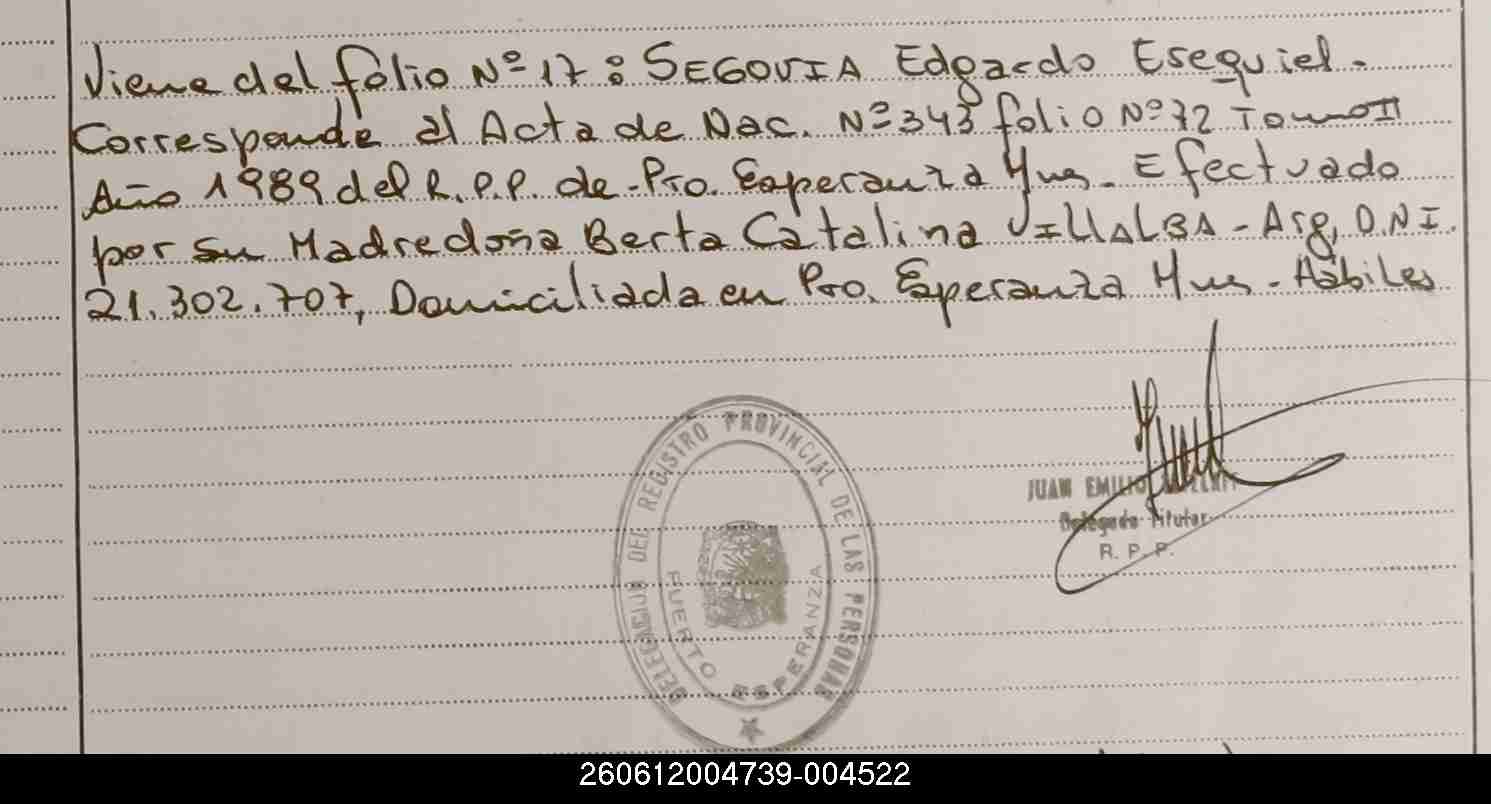 Viene del folio Nº 17: SEGOVIA Edgardo Esequiel.
Corresponde al Acta de Nac. Nº 343 folio Nº 72 Tomo II
Año 1989 del R.P.P. de Pto. Esperanza Mns. Efectuado
por su Madre doña Berta Catalina VILLALBA - Arg, D.N.I.
21.302.707, Domiciliada en Pto. Esperanza Mns. Hábiles
DELEGACION DEL REGISTRO PROVINCIAL DE LAS PERSONAS
PUERTO ESPERANZA
JUAN EMILIO
Delegado Titular
R. P. P.
260612004739-004522